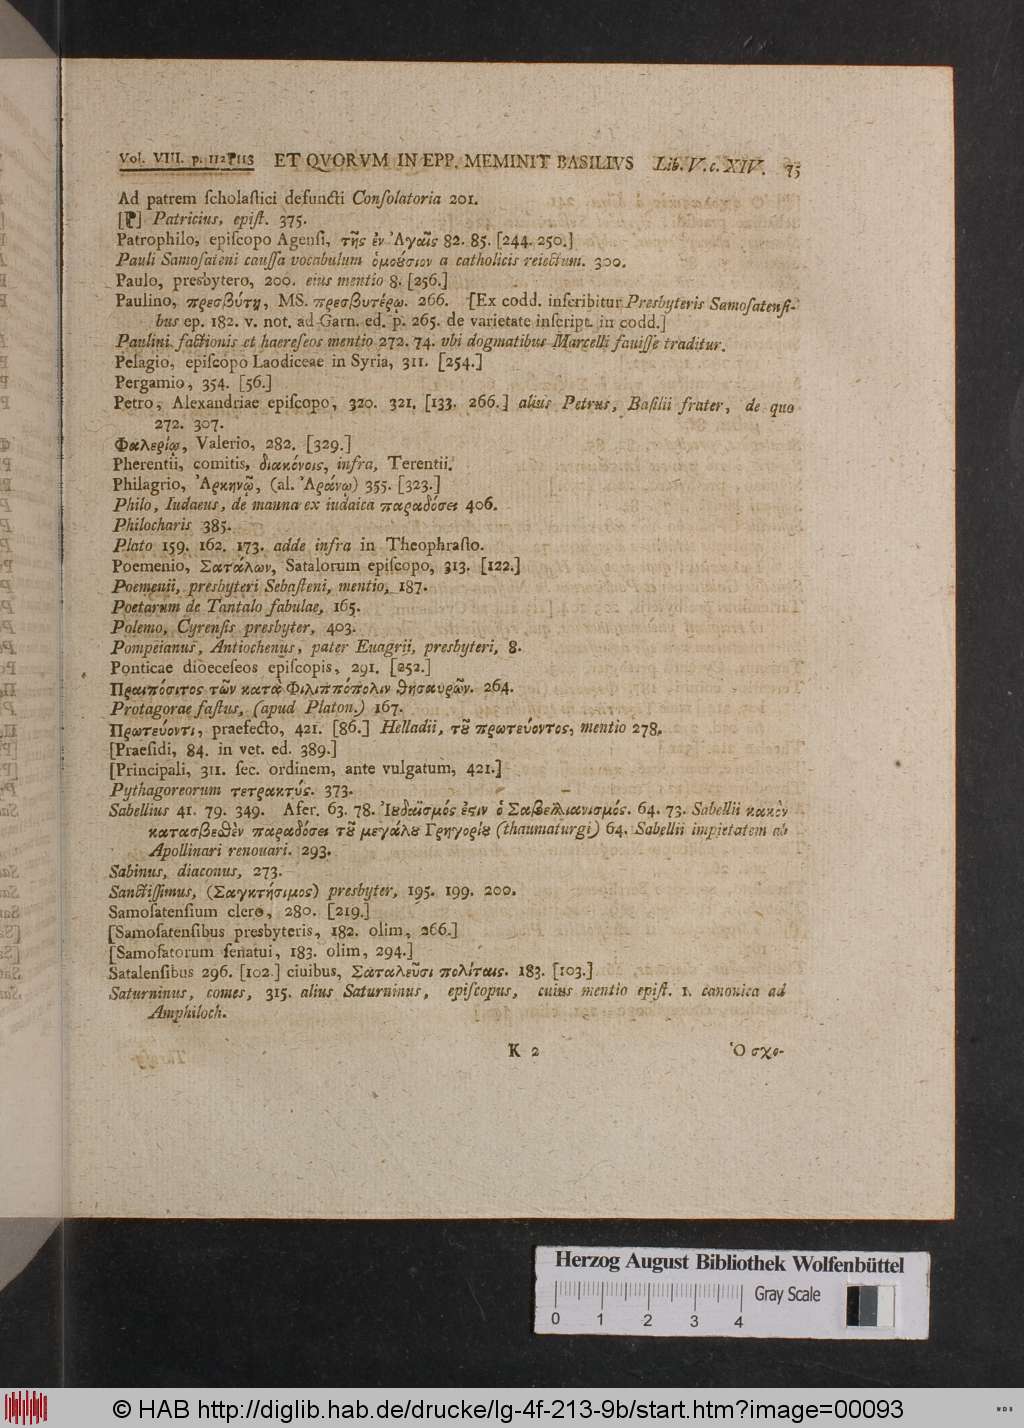 Vol. VIII. p. 112 113 ET QVORVM IN EPP. MEMINIT BASILIVS Lib. V. c. XIV. 75
Ad patrem ſcholaſtici defuncti Conſolatoria 201.
[P] Patricius, epiſt. 375.
Patrophilo, epiſcopo Agenſi, τῆς ἐν Ἀγαῖς 82. 85. [244. 250.]
Pauli Samoſateni cauſſa vocabulum ὁμοούσιον a catholicis reiectum. 300.
Paulo, presbytero, 200. eius mentio 8. [256.]
Paulino, πρεσβύτῃ, MS. πρεσβυτέρῳ. 266. [Ex codd. inſcribitur Presbyteris Samoſatenſi-
bus ep. 182. v. not. ad Garn. ed. p. 265. de varietate inſcript. in codd.]
Paulini factionis et haereſeos mentio 272. 74. vbi dogmatibus Marcelli fauiſſe traditur.
Pelagio, epiſcopo Laodiceae in Syria, 311. [254.]
Pergamio, 354. [56.]
Petro, Alexandriae epiſcopo, 320. 321. [133. 266.] alius Petrus, Baſilii frater, de quo
272. 307.
Φαλερίῳ, Valerio, 282. [329.]
Pherentii, comitis, διακόνοις, infra, Terentii.
Philagrio, Ἀρκηνῷ, (al. Ἀράνῳ) 355. [323.]
Philo, Iudaeus, de manna ex iudaica παραδόσει 406.
Philocharis 385.
Plato 159. 162. 173. adde infra in Theophraſto.
Poemenio, Σατάλων, Satalorum epiſcopo, 313. [122.]
Poemenii, presbyteri Sebaſteni, mentio, 187.
Poetarum de Tantalo fabulae, 165.
Polemo, Cyrenſis presbyter, 403.
Pompeianus, Antiochenus, pater Euagrii, presbyteri, 8.
Ponticae dioeceſeos epiſcopis, 291. [252.]
Πραιπόσιτος τῶν κατὰ Φιλιππόπολιν θησαυρῶν. 264.
Protagorae faſtus, (apud Platon.) 167.
Πρωτεύοντι, praefecto, 421. [86.] Helladii, τοῦ πρωτεύοντος, mentio 278.
[Praeſidi, 84. in vet. ed. 389.]
[Principali, 311. ſec. ordinem, ante vulgatum, 421.]
Pythagoreorum τετρακτύς. 373.
Sabellius 41. 79. 349. Afer. 63. 78. Ἰουδαϊσμός ἐστιν ὁ Σαβελλιανισμός. 64. 73. Sabellii κακὸν
κατασβεθὲν παραδόσει τοῦ μεγάλου Γρηγορίου (thaumaturgi) 64. Sabellii impietatem ab
Apollinari renouari. 293.
Sabinus, diaconus, 273.
Sanctiſſimus, (Σαγκτήσιμος) presbyter, 195. 199. 200.
Samoſatenſium clero, 280. [219.]
[Samoſatenſibus presbyteris, 182. olim, 266.]
[Samoſatorum ſenatui, 183. olim, 294.]
Satalenſibus 296. [102.] ciuibus, Σαταλεῦσι πολίταις. 183. [103.]
Saturninus, comes, 315. alius Saturninus, epiſcopus, cuius mentio epiſt. 1. canonica ad
Amphiloch.
K 2 Ὁ σχο-
Herzog August Bibliothek Wolfenbüttel
Gray Scale
0 1 2 3 4
© HAB http://diglib.hab.de/drucke/lg-4f-213-9b/start.htm?image=00093